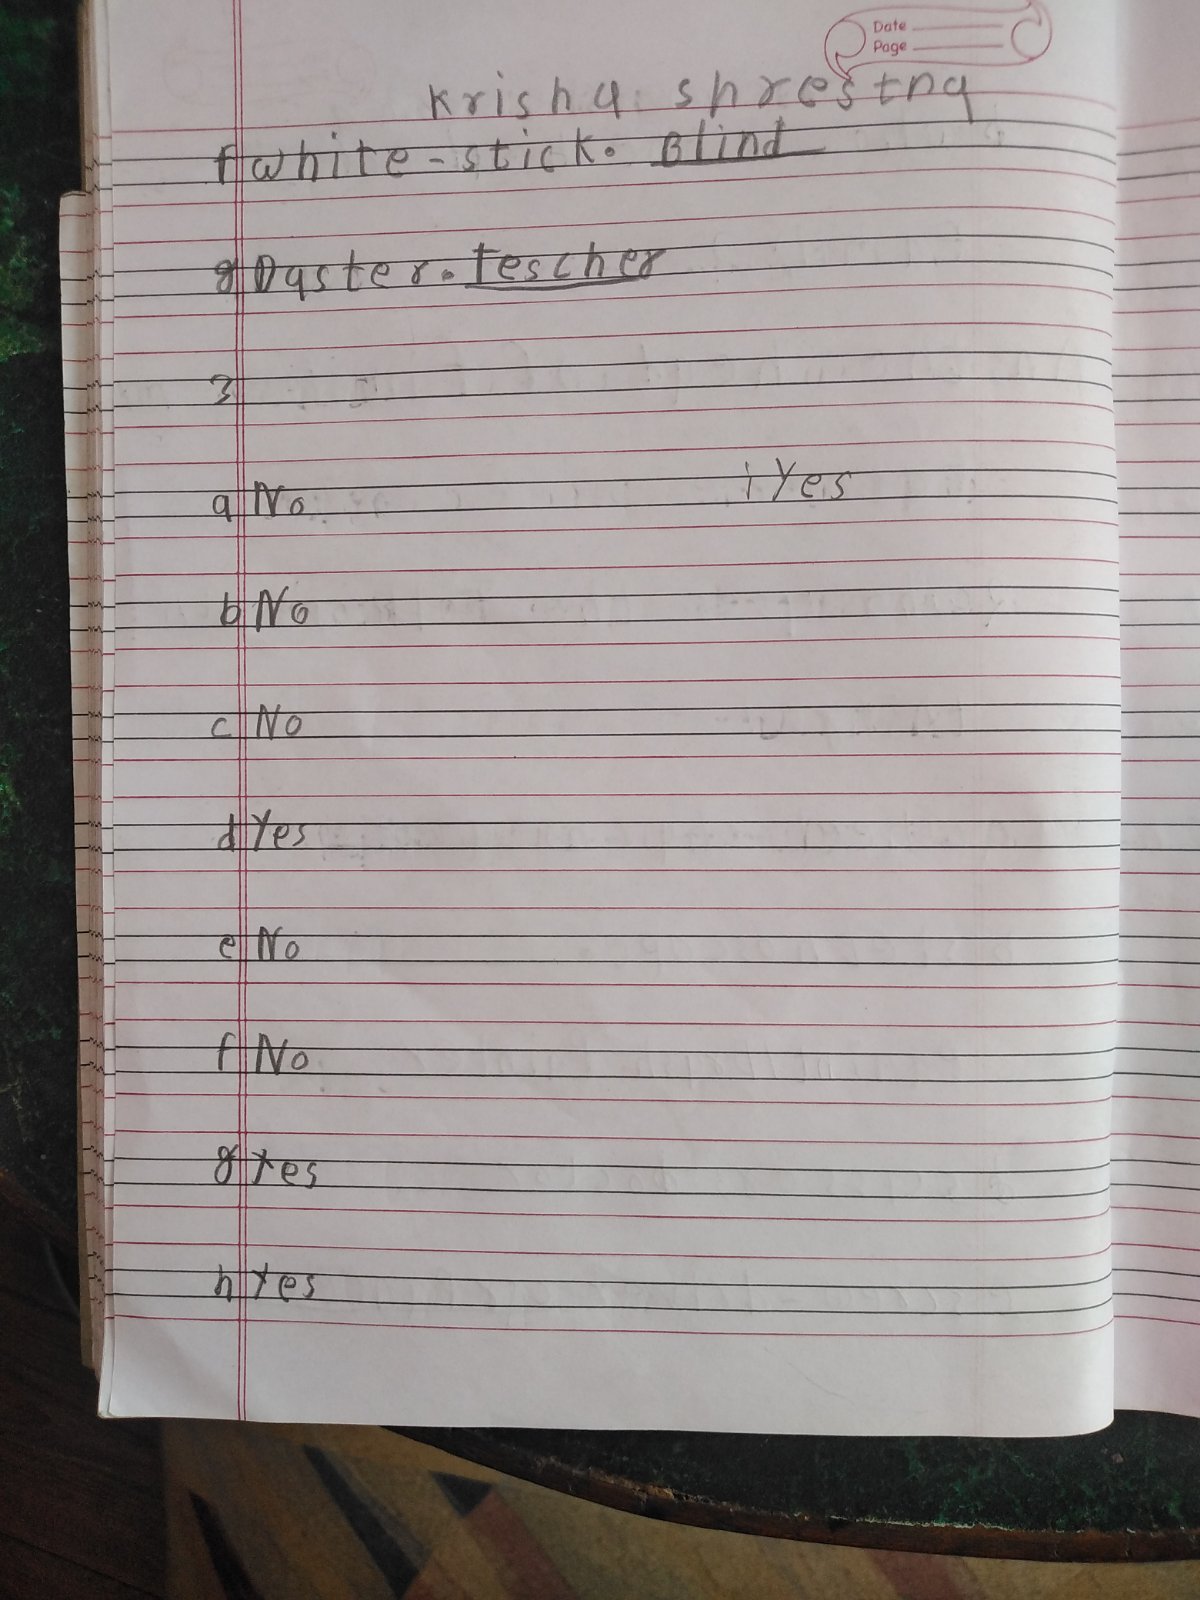 Date
Page
Krisha shrestha
f white-stick. Blind
g Daster. tescher
3
a No
i Yes
b No
c No
d Yes
e No
f No
g Yes
h Yes